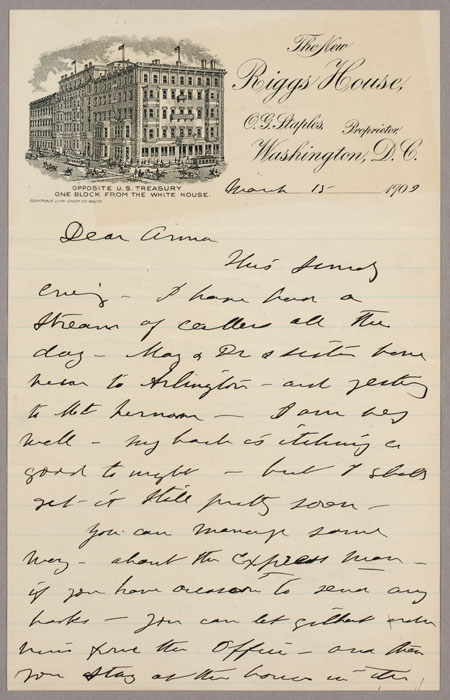 The New
Riggs House,
O.G. Staples, Proprietor.
Washington, D.C.
OPPOSITE U.S. TREASURY
ONE BLOCK FROM THE WHITE HOUSE.
March 15 1902
Dear Anna
This Sunday
Eve'g - I have had a
stream of callers all the
day - May & Dr & sister have
been to Arlington - and yesty
to Mt Vernon - I am very
well - my back is itching a
good to night - but I shall
get it still pretty soon -
You can manage some
way - about the Express man -
if you have occasion to send any
books - you can let Gilbert
the Office - and then
you stay at the house in the